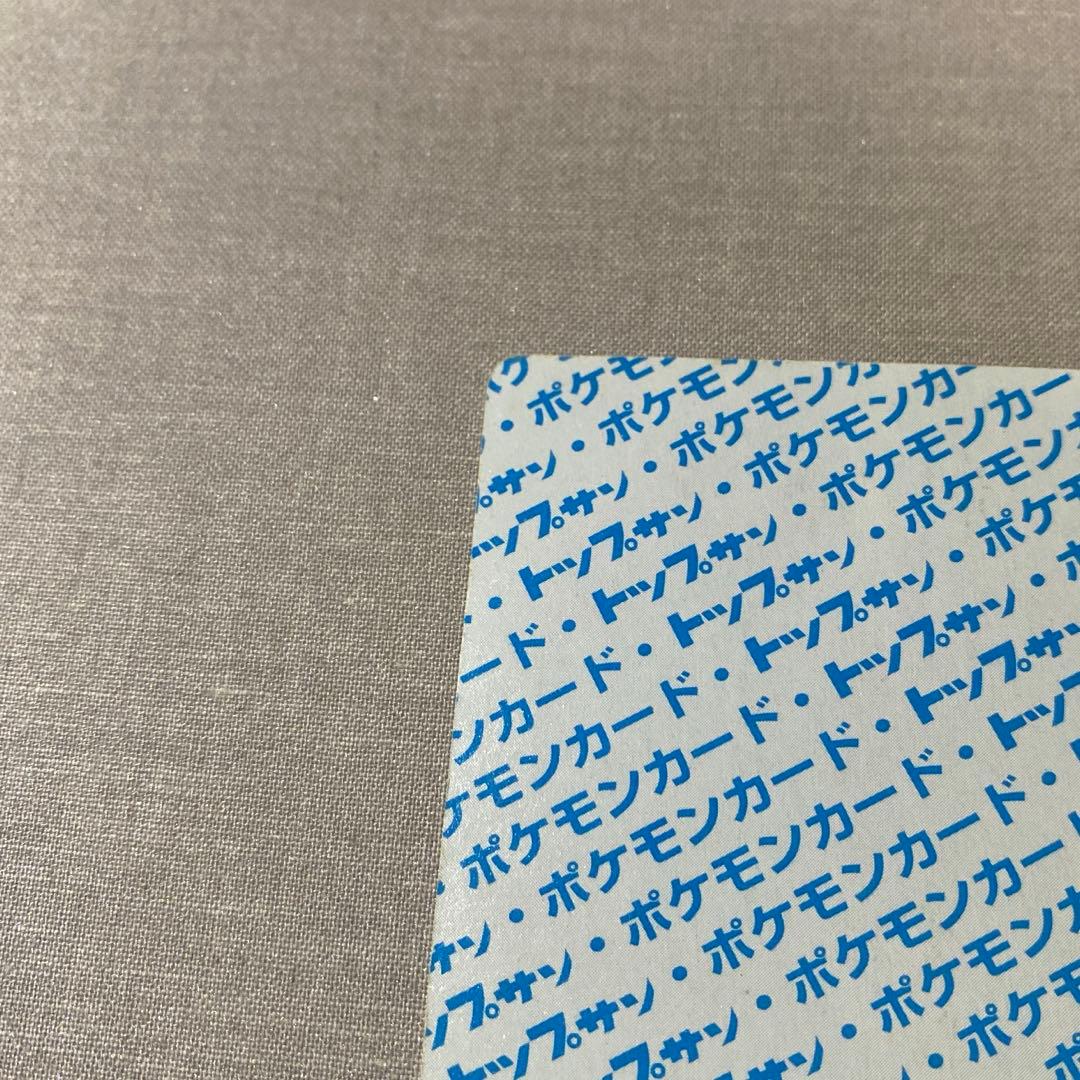 ・ポケモン
・ポケモン
トップサン・ポケモンカ
トップサン・ポケモンカー
・トップサン・ポケモンカー
ード・トップサン・ポケモンカ
ンカード・トップサン・ポケモン
ケモンカード・トップサン・ポケ
・ポケモンカード・トップサン・ポ
サン・ポケモンカード・トップサン
ップサン・ポケモンカード・トップ
トップサン・ポケモンカード・
トップサン・ポケモンカード
トップサン・ポケモンカー
・ポケモンカ
・ポケモ